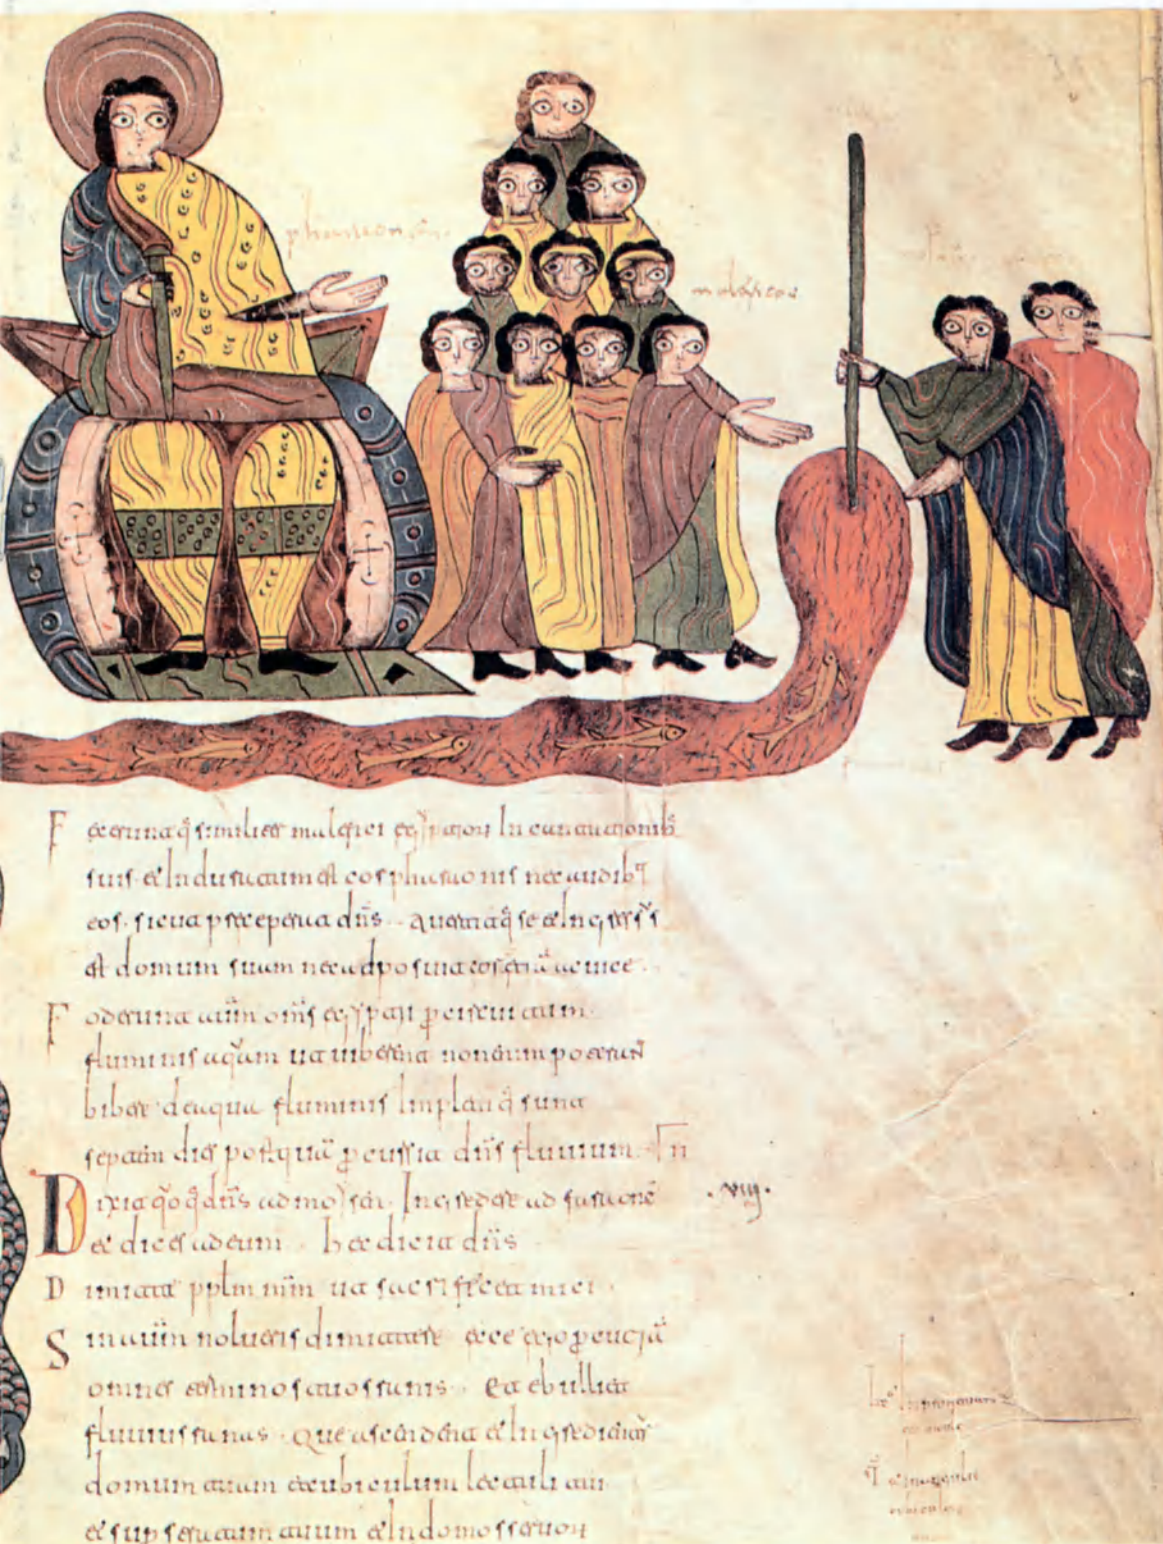 pharaon
maleficos
Feceruntq̄ similiter malefici egyptior̄ In cantationib̄
suis· et Induratum est cor pharaonis nec audibt̄
eos· sicut preceperat dn̄s· Auertitq̄ se et Ingress̄s
est domum suam nec adposuit cor etiā ac uice·
Foderunt autm̄ omn̄s egyptii p̄ circuitum
fluminis aquam ut biberent non enim poterant
bibere de aqua fluminis Impletiq̄ sunt
septem dies postquā p̄cussit dn̄s fluuium·
Dixit quoq̄ dn̄s ad moysen· Ingredere ad faraonē ·viiij·
et dices ad eum· hec dicit dn̄s
Dimitte pplm mm̄ ut sacrificet mici·
Sin autm̄ nolueris dimittere ecce ego p̄cutiā
omnes terminos tuos ranis· Et ebulliet
fluuius ranas· que ascendent et Ingredient̄
domum tuam et cubiculum lectuli tui
et sup̄ stratum tuum et In domos seruor̄